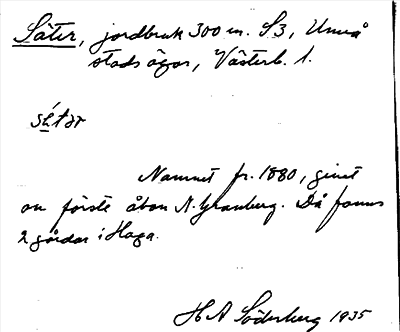 Säter, jordbruk 300 m. S3, Umeå
stads ägor, Västerb. l.
sę́tər
Namnet fr. 1880, givet
av förste åbon N. Granberg. Då fanns
2 gårdar i Haga.
H A Söderberg 1935